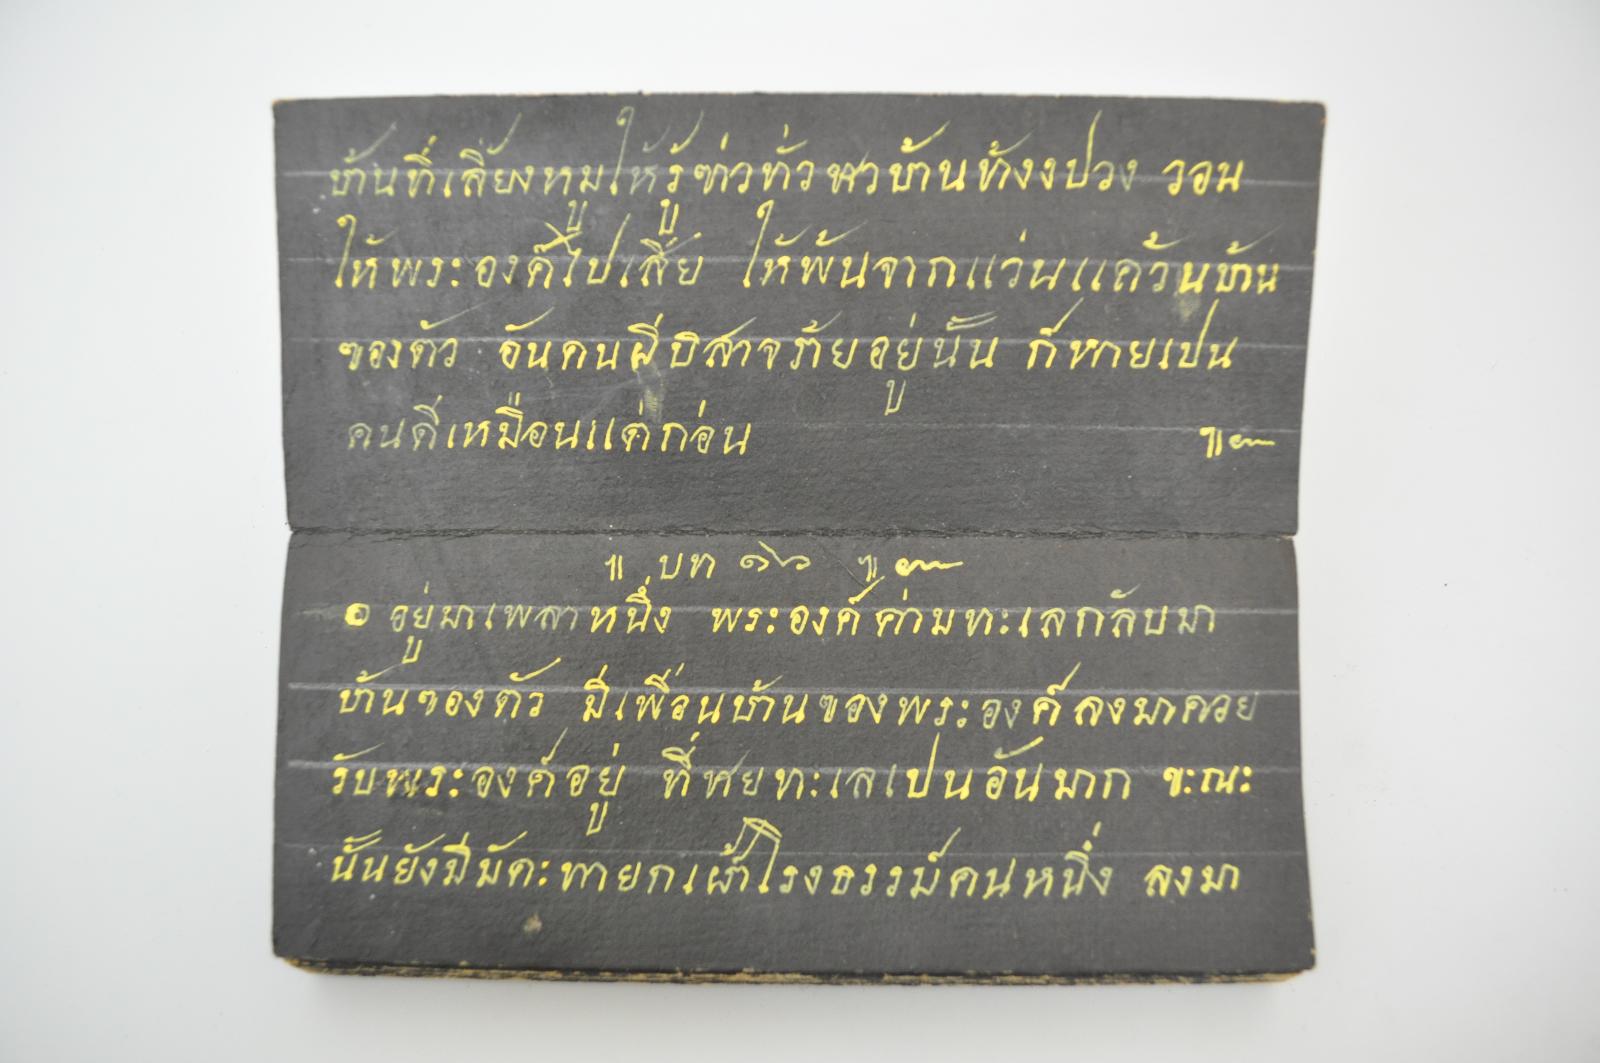 บ้านที่เลี้ยงหมูให้รู้ข่าวทั่วชาวบ้านทังงปวง วอน
ให้พระองค์ไปเสีย ให้พ้นจากแว่นแคว้นบ้าน
ของตัว อันคนผีปิสาจร้ายอยู่นั้น ก็หายเปน
คนดีเหมือนแต่ก่อน ๚ะ๛
๚ บท ๑๖ ๚ะ๛
๏ อยู่มาเพลาหนึ่ง พระองค์ค่ามทะเลกลับมา
บ้านของตัว มีเพื่อนบ้านของพระองค์ลงมาคอย
รับพระองค์อยู่ ที่ชายทะเลเปนอันมาก ขะณะ
นั้นยังมีมัคะทายกเฝ้าโรงธรรม์คนหนึ่ง ลงมา